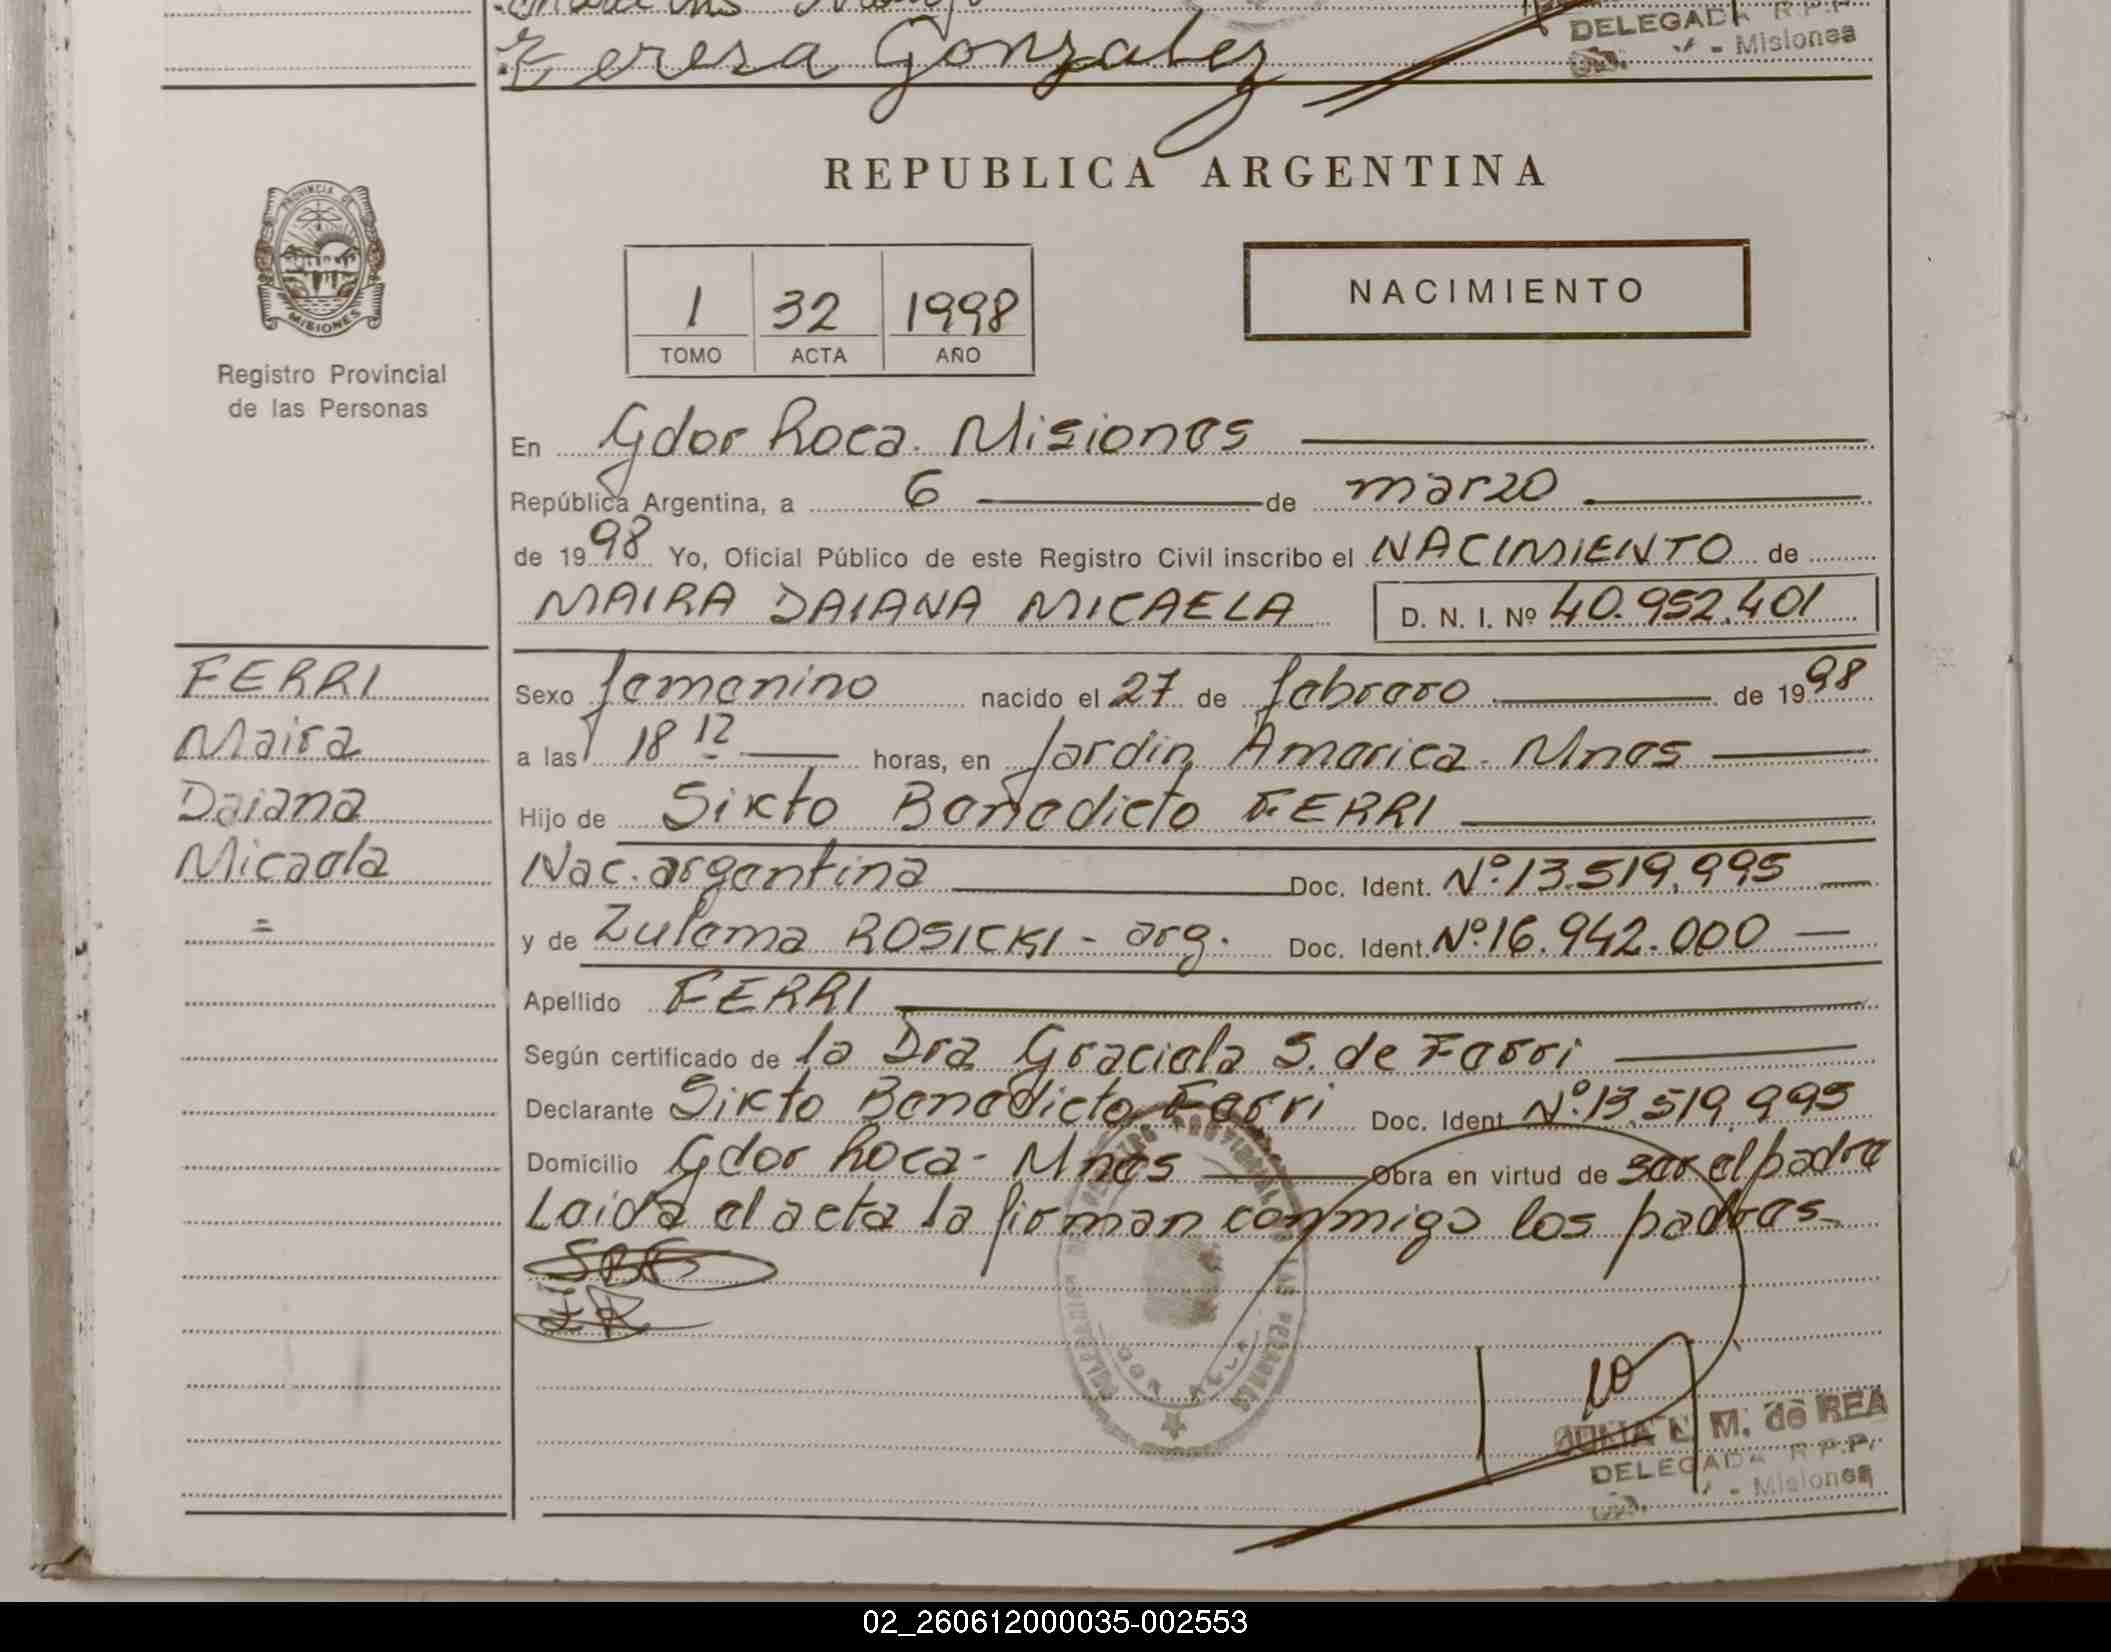 Teresa Gonzalez
DELEGADA R.P.P.
- Misiones
REPUBLICA ARGENTINA
PROVINCIA DE
MISIONES
Registro Provincial
de las Personas
1 32 1998
TOMO ACTA AÑO
NACIMIENTO
En Gdor Roca. Misiones
República Argentina, a 6 de marzo
de 1998 Yo, Oficial Público de este Registro Civil inscribo el NACIMIENTO de
MAIRA DAIANA MICAELA D. N. I. Nº 40.952.401
FERRI
Maira
Daiana
Micaela
=
Sexo femenino nacido el 27 de febrero de 1998
a las 18 12 horas, en Jardin America - Mnes
Hijo de Sixto Benedicto FERRI
Nac. argentina Doc. Ident. Nº 13.519.995
y de Zulema ROSICKI - arg. Doc. Ident. Nº 16.942.000
Apellido FERRI
Según certificado de la Dra Graciela S. de Ferri
Declarante Sixto Benedicto Ferri Doc. Ident Nº 13.519.995
Domicilio Gdor Roca - Mnes Obra en virtud de ser el padre
Leida el acta la firman conmigo los padres.
SBF
ZR
M. de REA
DELEGADA R.P.P.
- Misiones
02_260612000035-002553